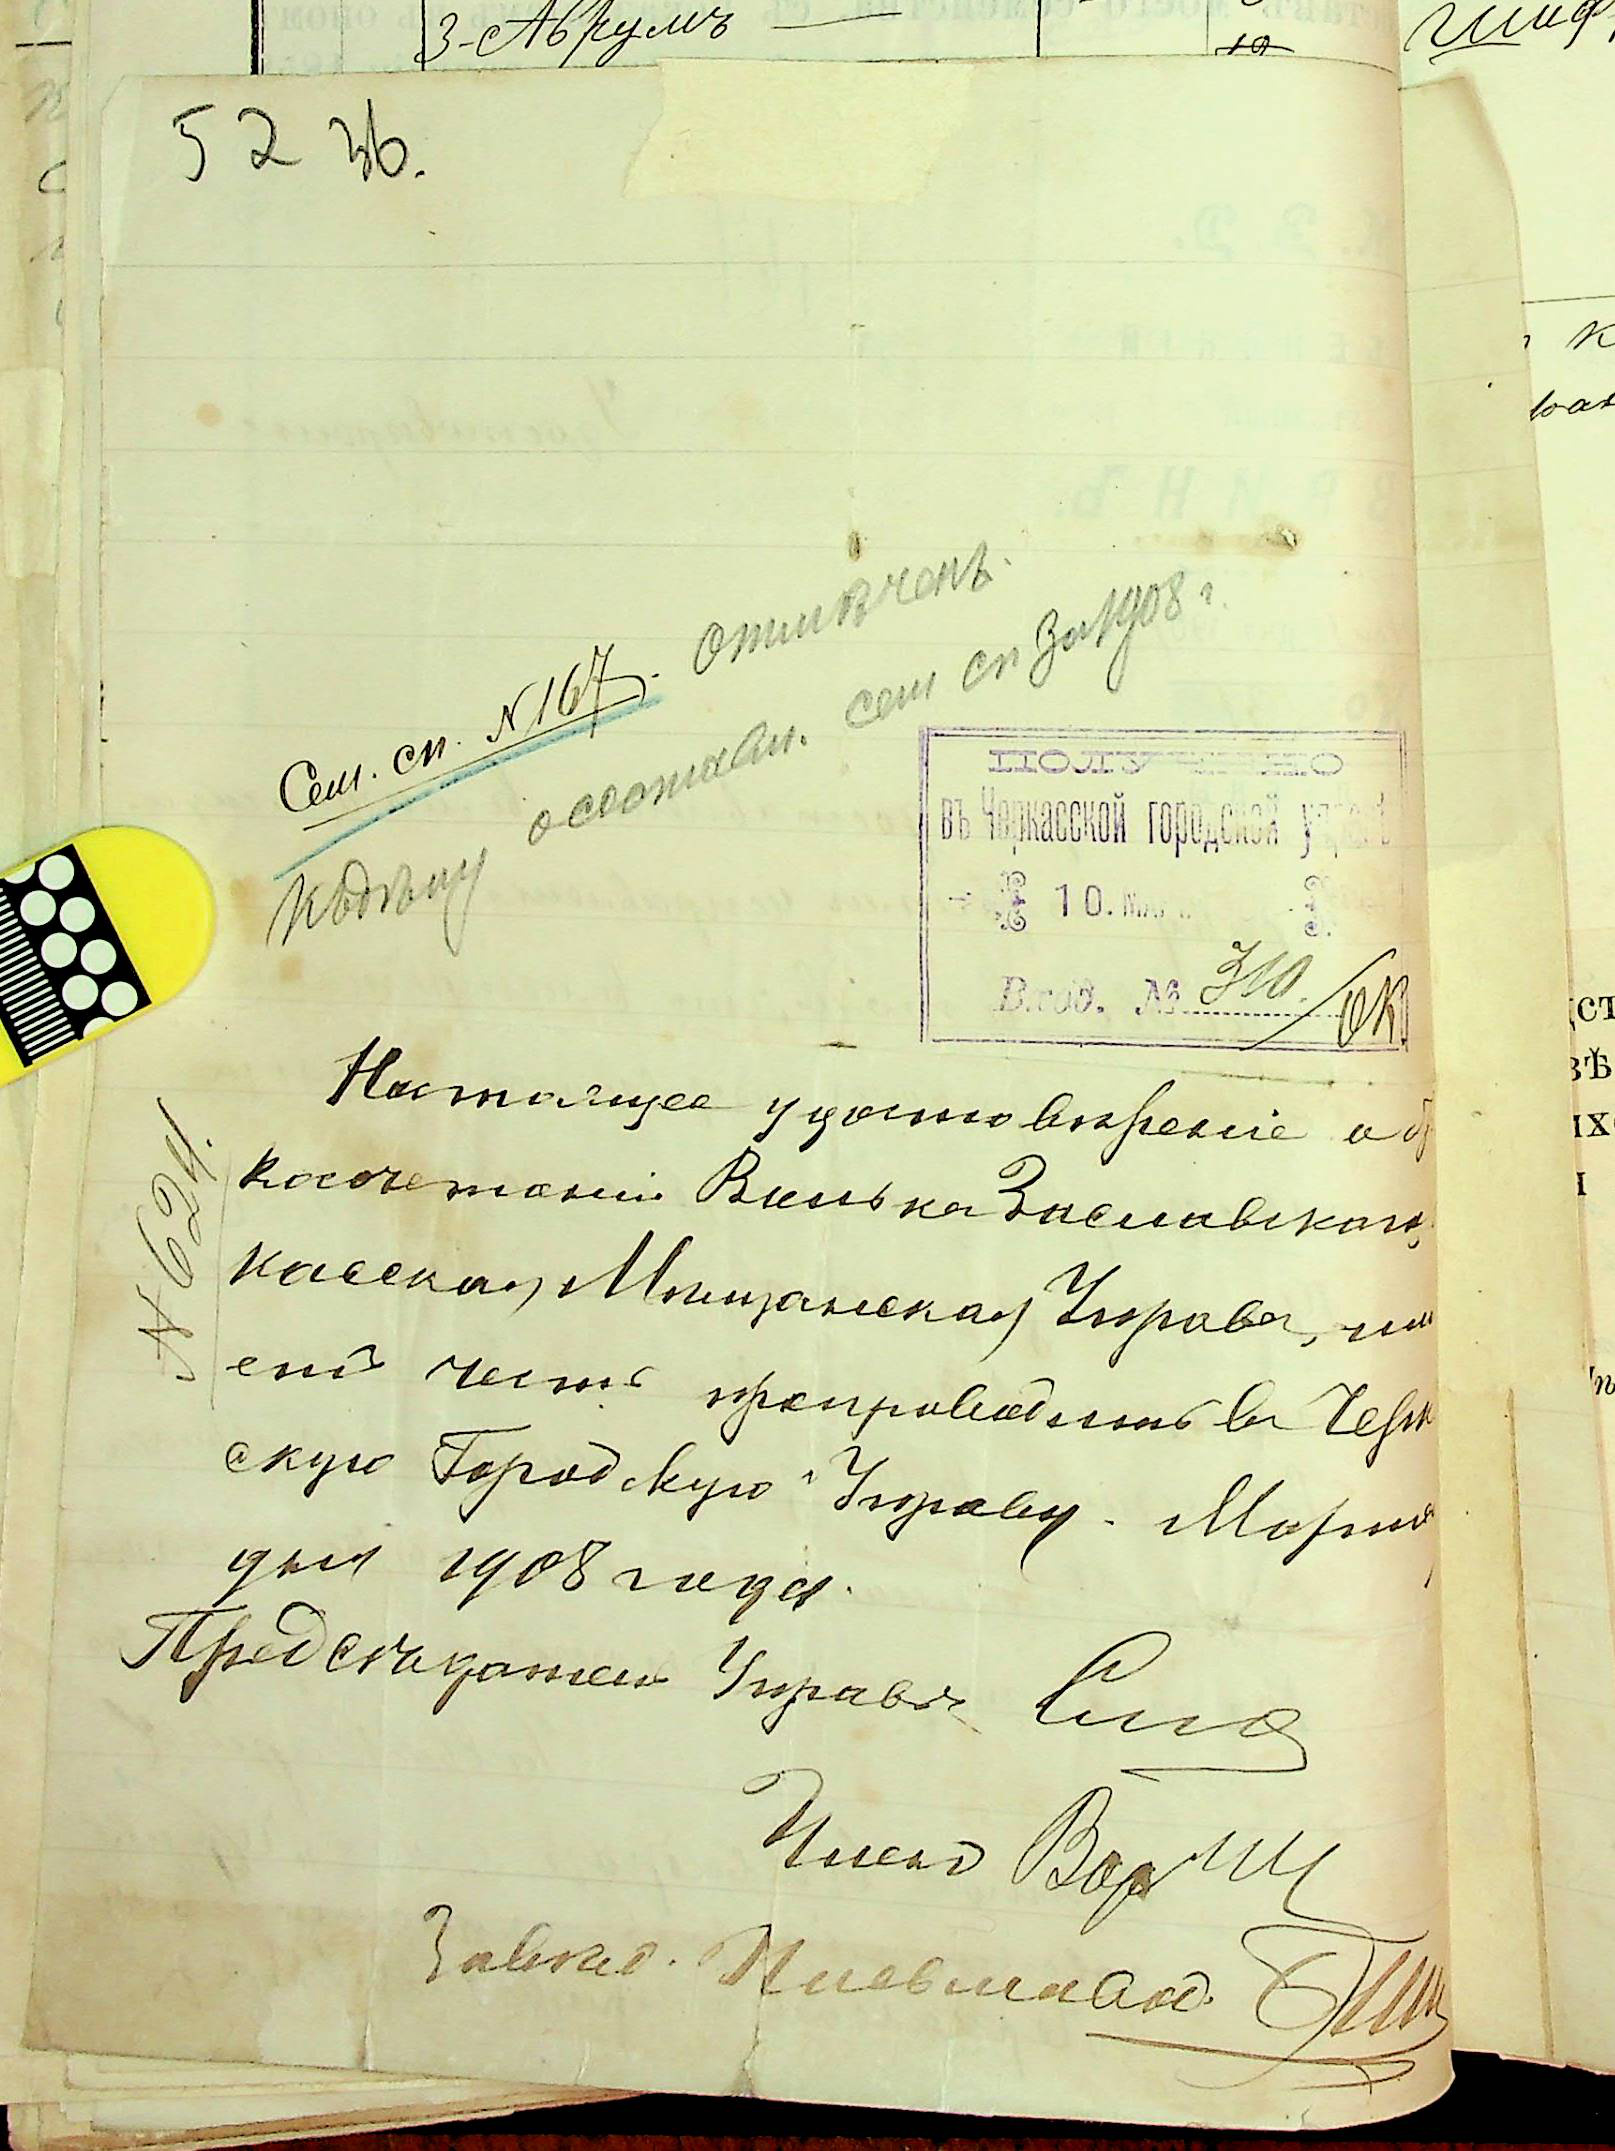 3-Аврумъ
19
52 зв.
Сем. сп. N 167. Отмѣченъ.
Къ дѣлу о составл. сем сп за 1908 г.
ПОЛУЧЕНО
въ Черкасской городской управѣ
10. МАР
Вход. № 310.
N 624.
Настоящее удостовѣреніе о б
косочетаніи Вилька Заславскаго
касская Мѣщанская Управа, им
етъ честь препроводить въ Черк
скую Городскую Управу. Марта
дня 1908 года.
Предсѣдатель Управы
Членъ
Завѣд. Письмовод.